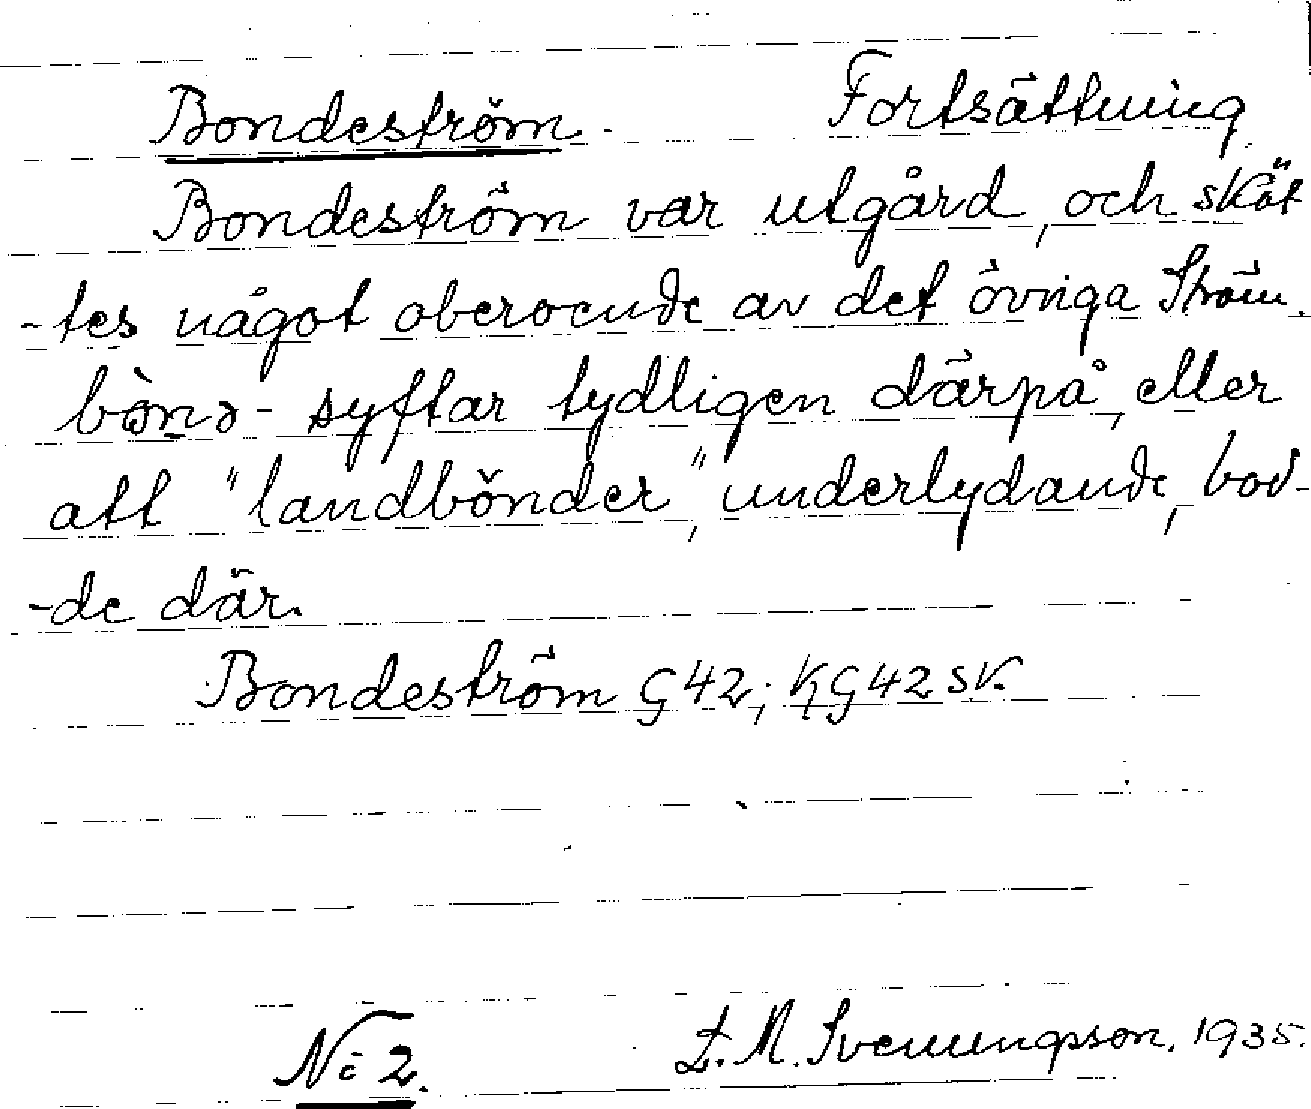 Bondeström. Fortsättning
Bondeström var utgård, och sköt
-tes något oberoende av det övriga Ström.
bònə- syftar tydligen därpå, eller
att "landbönder", underlydande, bod-
-de där.
Bondeström G42; KG42 SK.
No 2. L. M. Svenungsson. 1935.